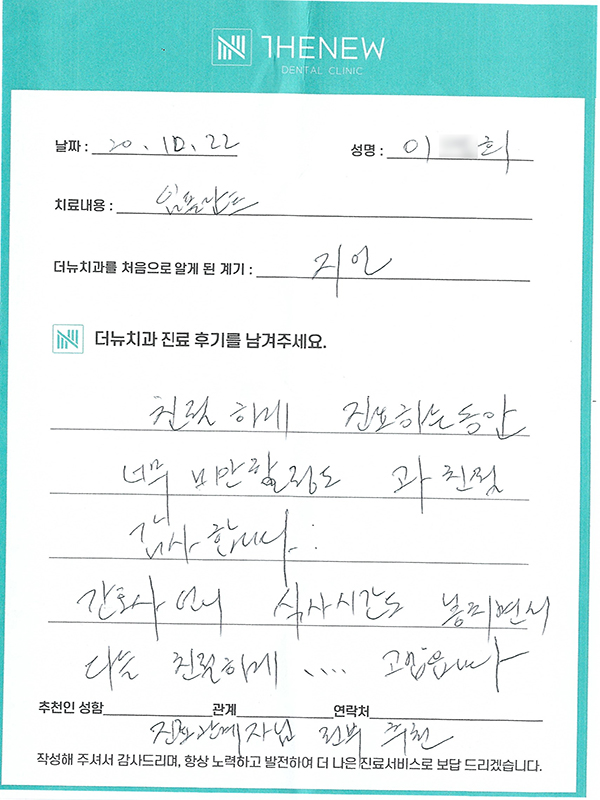 THENEW
DENTAL CLINIC
날짜 : 20. 10. 22
성명 : 이 희
치료내용 : 임플란트
더뉴치과를 처음으로 알게 된 계기 : 지인
더뉴치과 진료 후기를 남겨주세요.
친절하게 진료하는동안
너무 미안할정도 과친절
감사합니다.
간호사 언니 식사시간도 놓치면서
다들 친절하게 .... 고맙읍니다
추천인 성함 관계 연락처
진료관계자님 전부 추천
작성해 주셔서 감사드리며, 항상 노력하고 발전하여 더 나은 진료서비스로 보답 드리겠습니다.